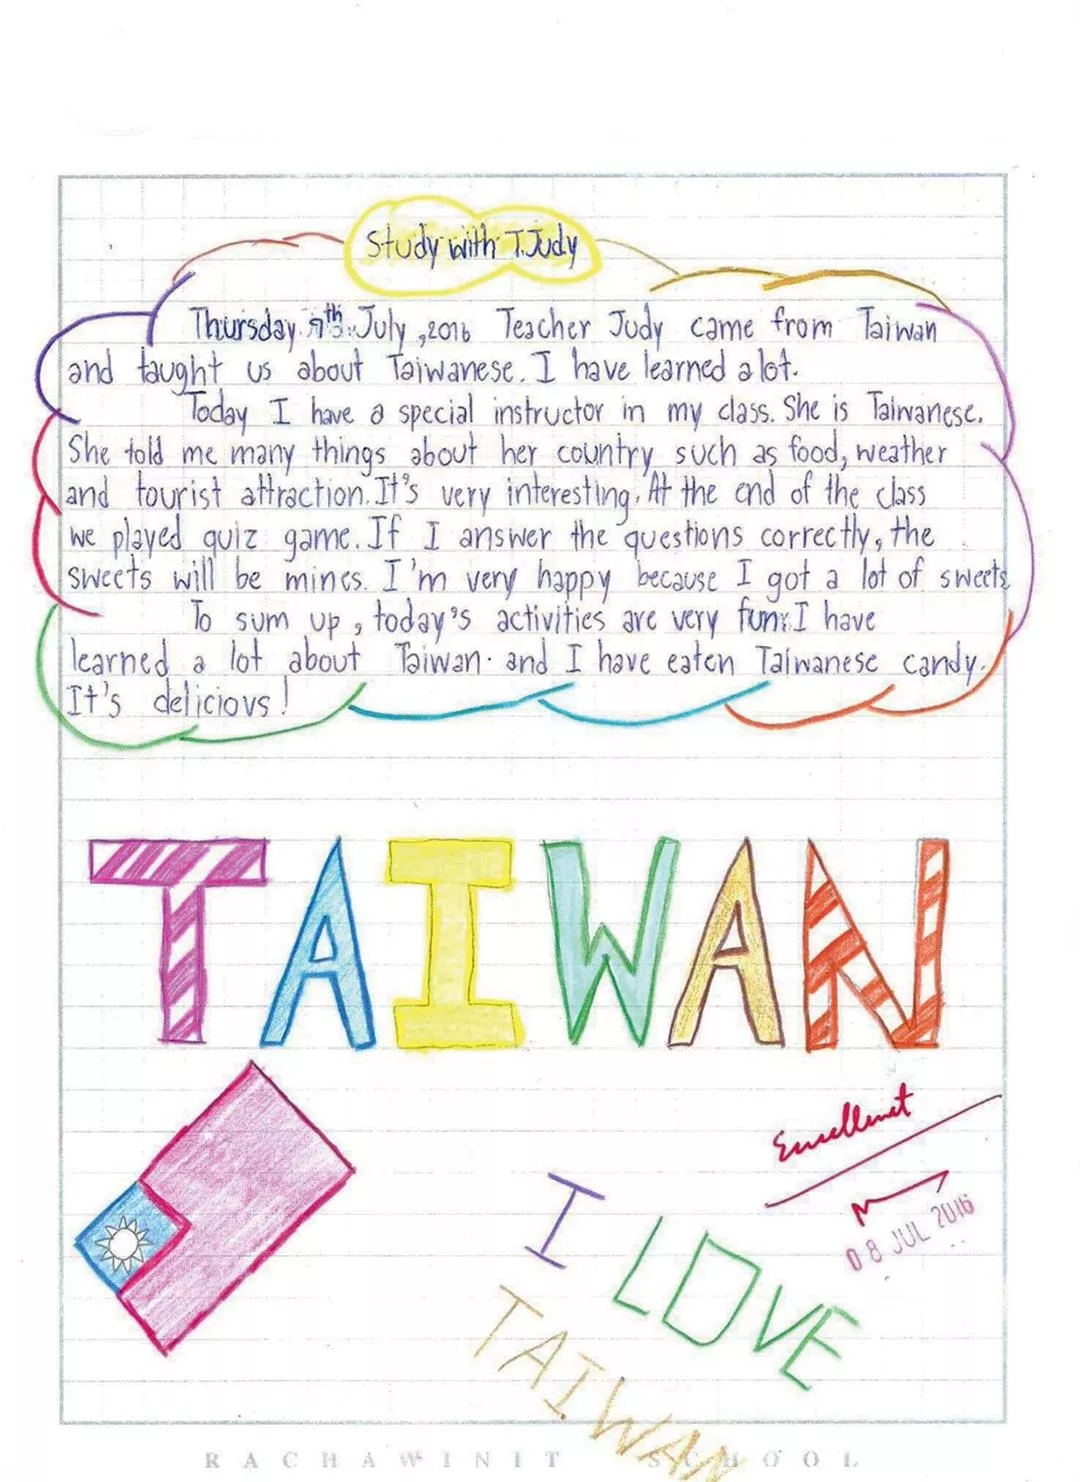 Study with T.Judy
Thursday 7th July ,2016 Teacher Judy came from Taiwan
and taught us about Taiwanese. I have learned a lot.
Today I have a special instructor in my class. She is Taiwanese.
She told me many things about her country such as food, weather
and tourist attraction. It's very interesting. At the end of the class
we played quiz game. If I answer the questions correctly, the
sweets will be mines. I'm very happy because I got a lot of sweets
To sum up , today's activities are very fun. I have
learned a lot about Taiwan. and I have eaten Taiwanese candy.
It's delicious !
TAIWAN
Excellenet
08 JUL 2016
I LOVE
TAIWAN
RACHAWINIT SCHOOL